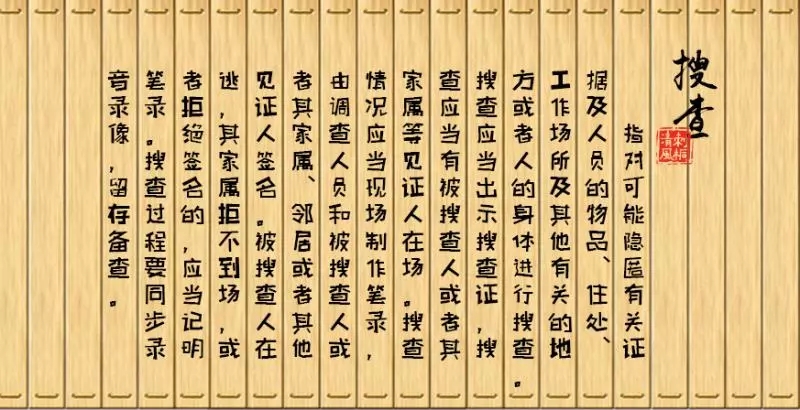 搜查
刺桐
清风
指对可能隐匿有关证
据及人员的物品、住处、
工作场所及其他有关的地
方或者人的身体进行搜查。
搜查应当出示搜查证，搜
查应当有被搜查人或者其
家属等见证人在场。搜查
情况应当现场制作笔录，
由调查人员和被搜查人或
者其家属、邻居或者其他
见证人签名。被搜查人在
逃，其家属拒不到场，或
者拒绝签名的，应当记明
笔录。搜查过程要同步录
音录像，留存备查。